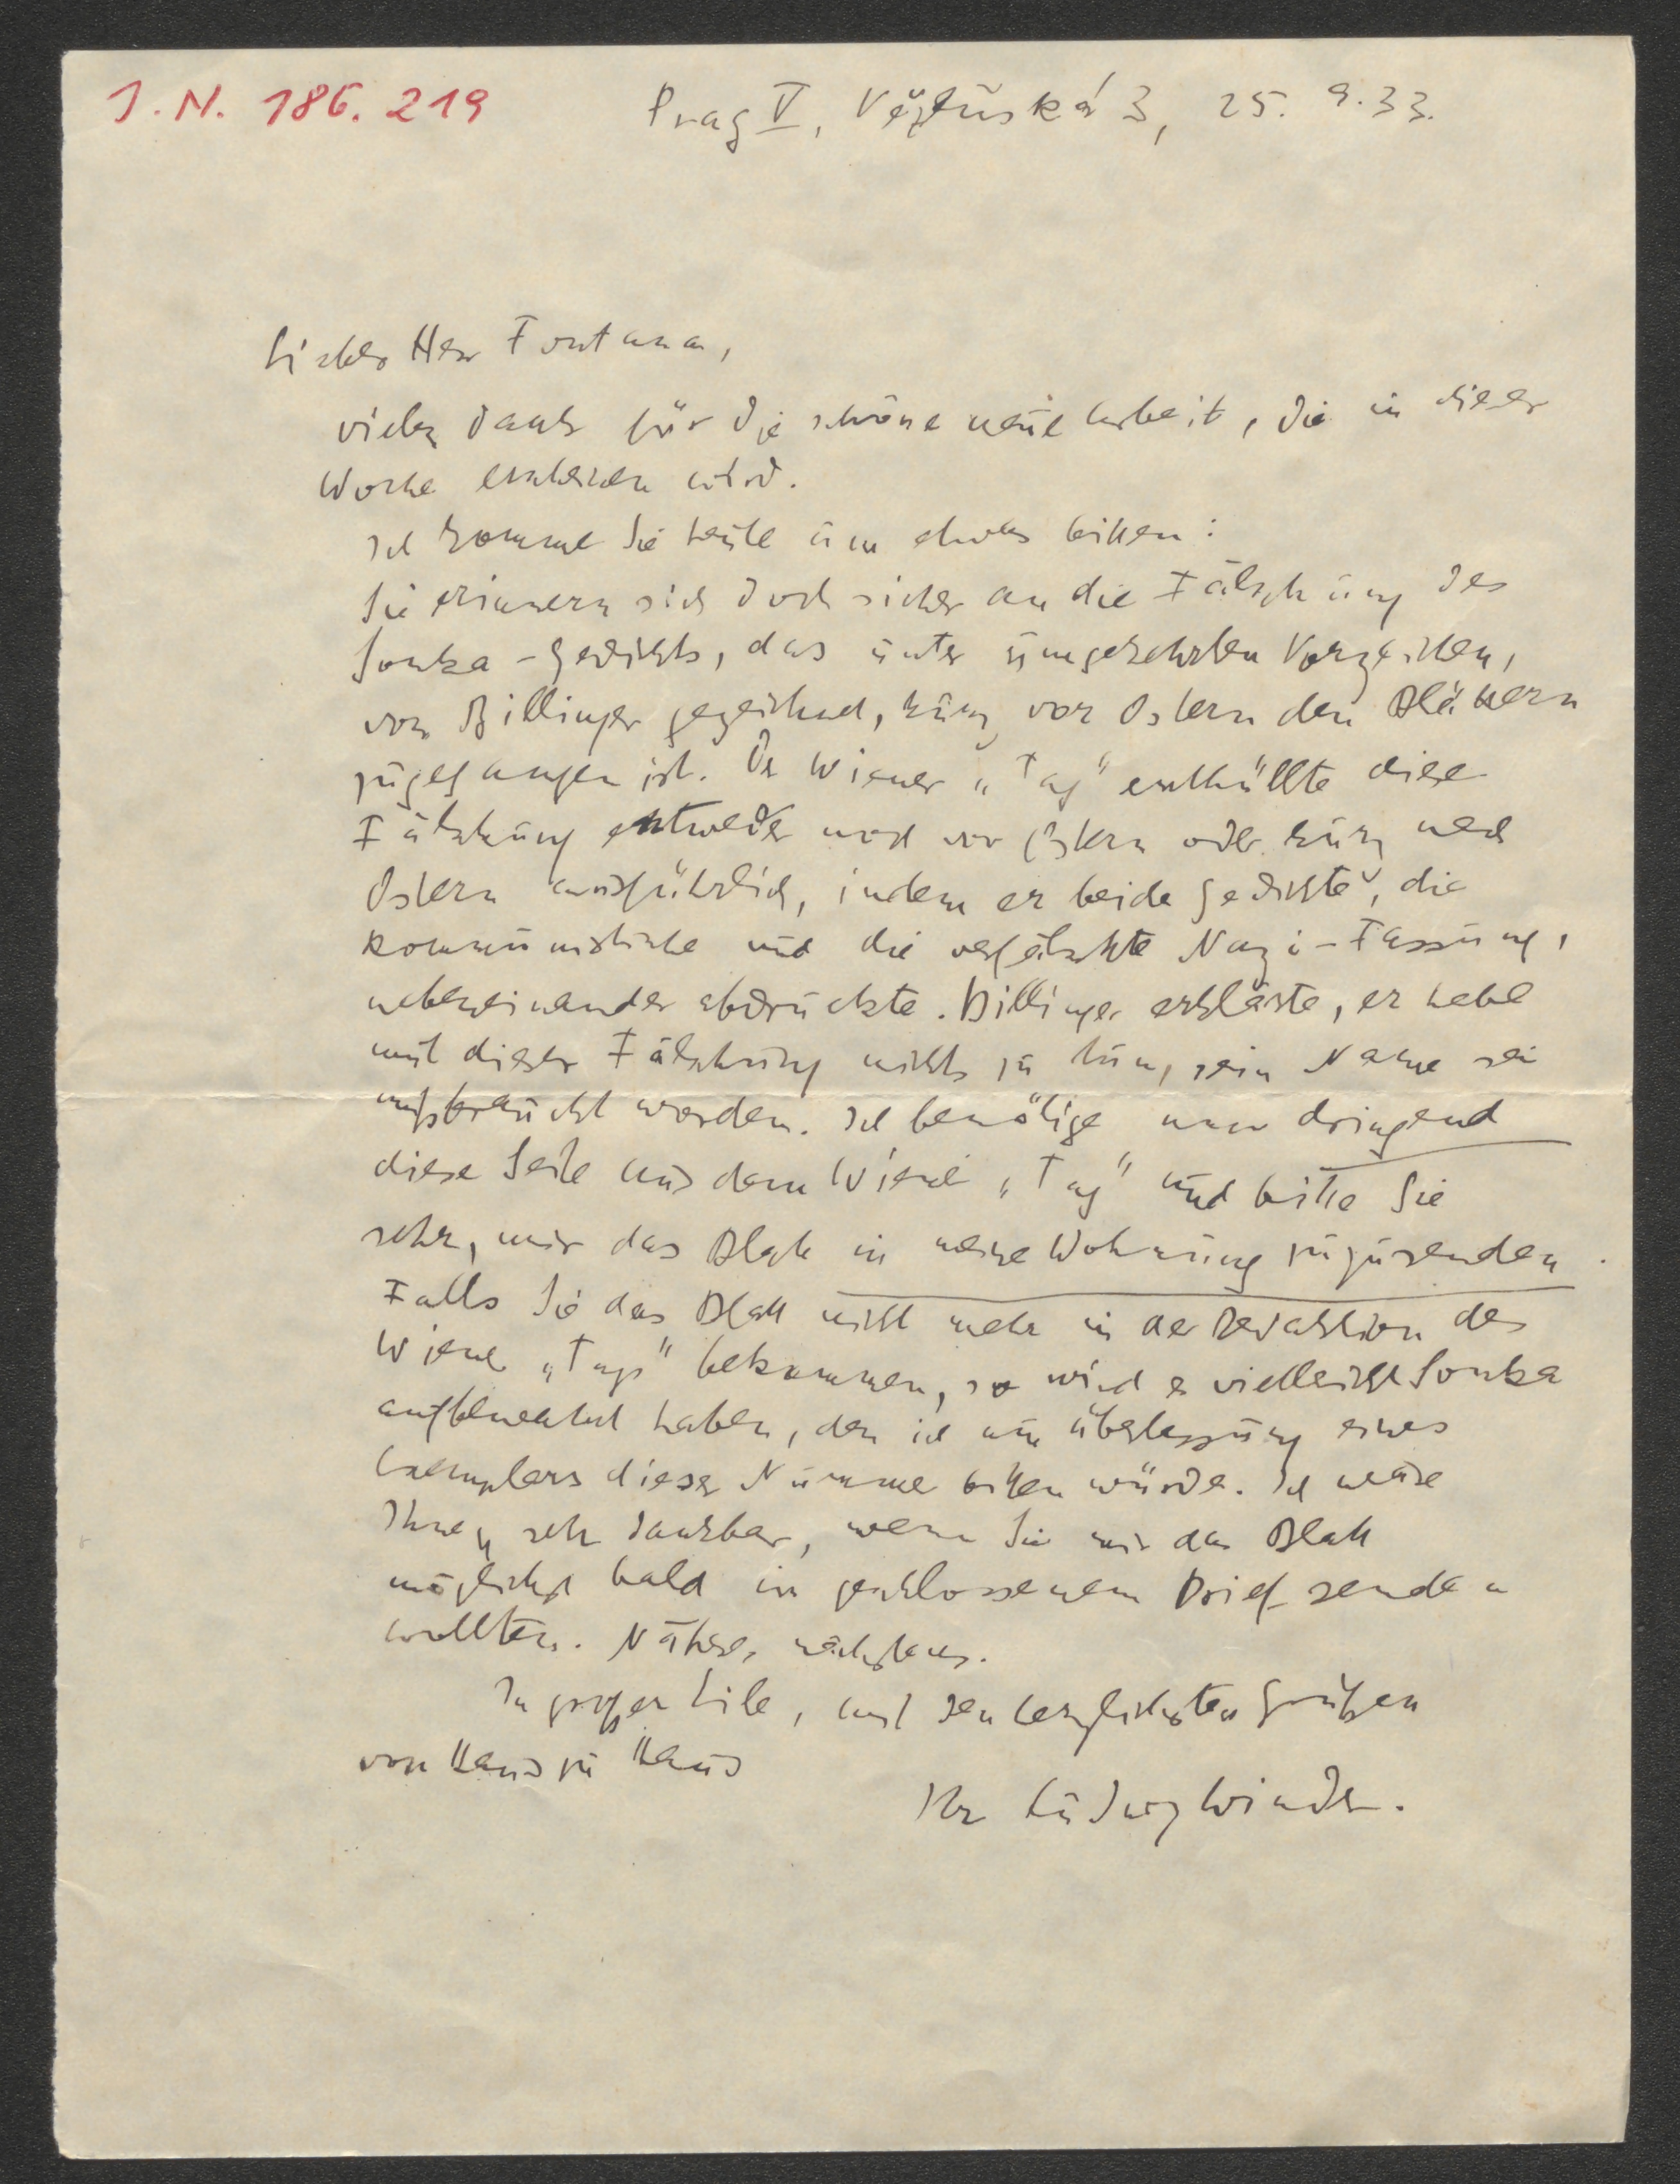 J. N. 186. 219
Prag V, Vězeňská 3, 25. 9. 33.
Lieber Herr Fontana,
vielen Dank für die schöne neue Arbeit, die in dieser
Woche erscheinen wird.
Ich komme Sie heute um etwas bitten:
Sie erinnern sich doch sicher an die Fälschung des
Sonka-Gedichts, das unter umgekehrten Vorzeichen,
von Billinger gezeichnet, kurz vor Ostern den Blättern
zugegangen ist. Der Wiener „Tag" enthüllte diese
Fälschung entweder noch vor Ostern oder kurz nach
Ostern ausführlich, indem er beide Gedichte, die
kommunistische und die verfälschte Nazi-Fassung,
nebeneinander abdruckte. Billinger erklärte, er habe
mit dieser Fälschung nichts zu tun, sein Name sei
mißbraucht worden. Ich benötige nun dringend
diese Seite aus dem Wiener „Tag" und bitte Sie
sehr, mir das Blatt in meine Wohnung zuzusenden.
Falls Sie das Blatt nicht mehr in der Redaktion des
Wiener „Tags" bekommen, so wird es vielleicht Sonka
aufbewahrt haben, den ich um Überlassung eines
Exemplars dieser Nummer bitten würde. Ich wäre
Ihnen sehr dankbar, wenn Sie mir das Blatt
möglichst bald in geschlossenem Brief senden
wollten. Näheres nächstens.
In großer Eile, mit den herzlichsten Grüßen
von Haus zu Haus
Ihr Ludwig Winder.